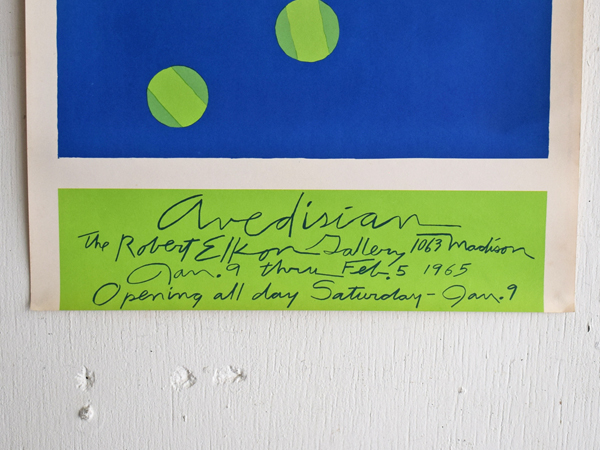 Avedisian
The Robert Elkon Gallery 1063 Madison
Jan. 9 thru Feb. 5 1965
Opening all day Saturday - Jan. 9